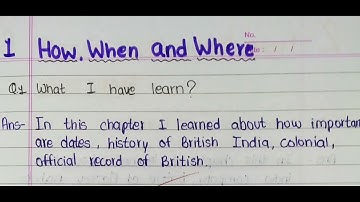 No.
1 How. When and Where
Date : / /
Q.1 What I have learn?
Ans- In this chapter I learned about how importan
are dates, history of British India, colonial,
official record of British.